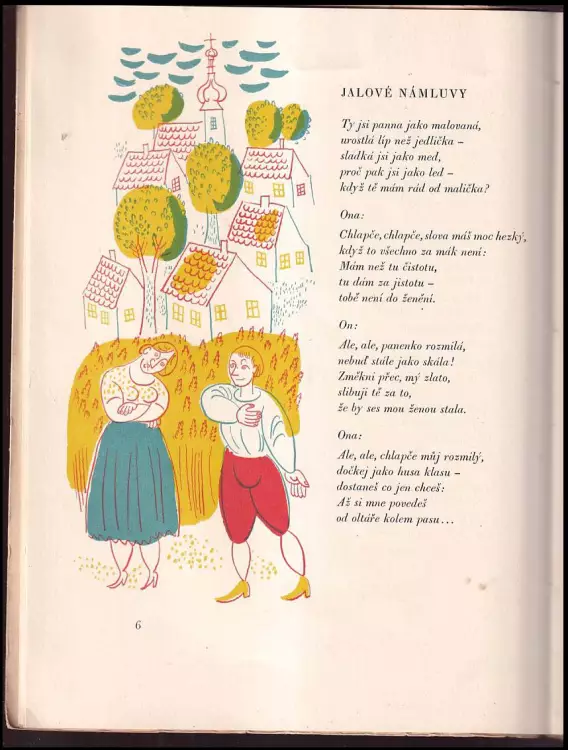 JALOVÉ NÁMLUVY
Ty jsi panna jako malovaná,
urostlá líp než jedlička –
sladká jsi jako med,
proč pak jsi jako led –
když tě mám rád od malička?
Ona:
Chlapče, chlapče, slova máš moc hezký,
když to všechno za mák není:
Mám než tu čistotu,
tu dám za jistotu –
tobě není do ženění.
On:
Ale, ale, panenko rozmilá,
nebuď stále jako skála!
Změkni přec, mý zlato,
slibuji tě za to,
že by ses mou ženou stala.
Ona:
Ale, ale, chlapče můj rozmilý,
dočkej jako husa klasu –
dostaneš co jen chceš:
Až si mne povedeš
od oltáře kolem pasu...
6